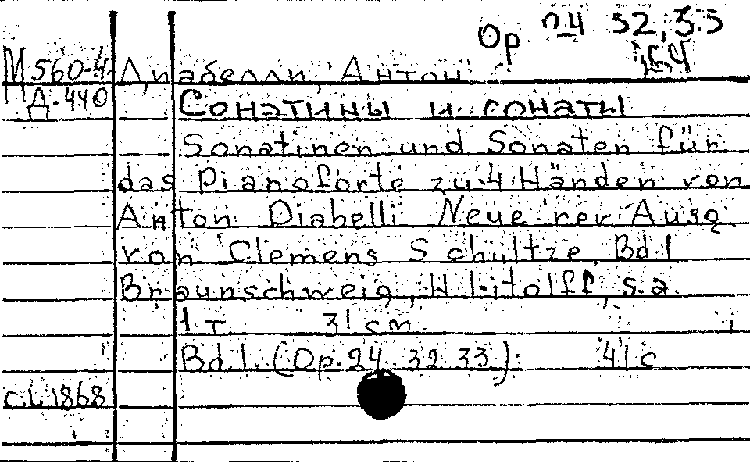 Ор 24 32, 33
М 560-4 Диабелли, Антон
Д-440 Сонатины и сонаты
Sonatinen und Sonaten für
das Pianoforte zu 4 Händen von
Anton Diabelli Neue rev Ausg
von Clemens Schultze, Bd.1
Braunschweig, H Litolff, s.a.
1 т 31 cm
Bd.1. (Op.24, 32 33). 41 c
1868